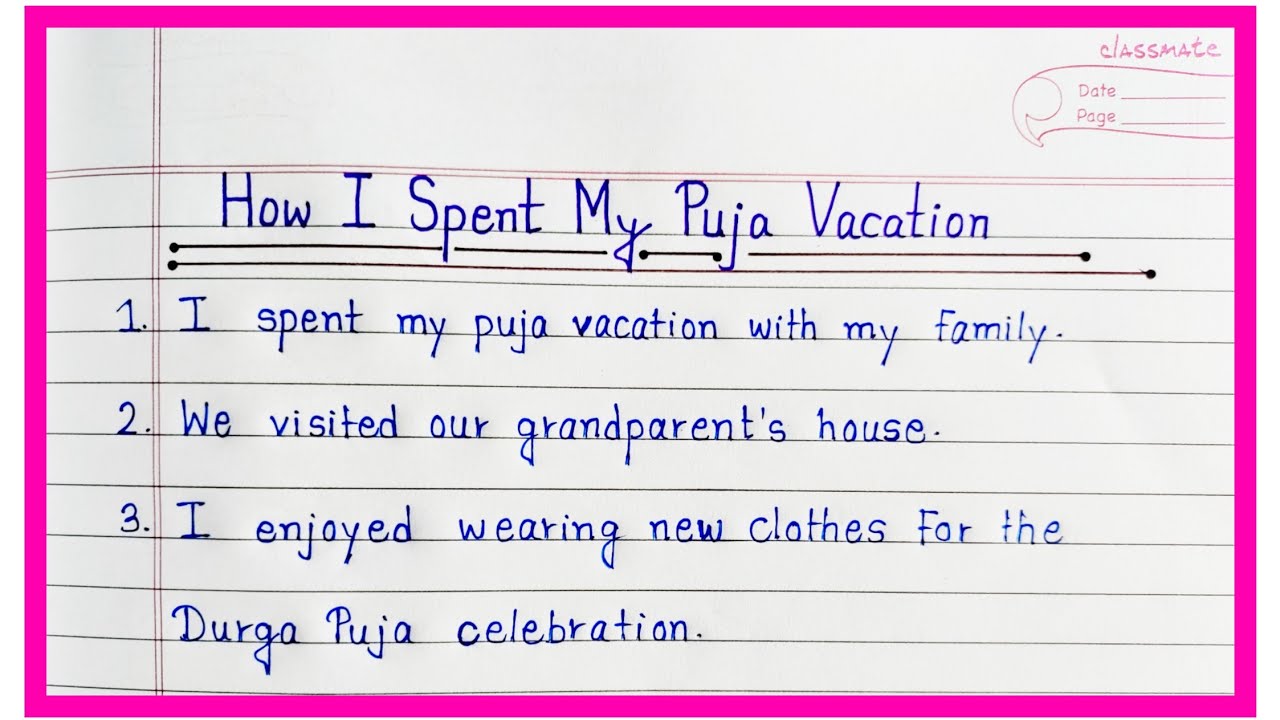 classmate
Date
Page
How I Spent My Puja Vacation
1. I spent my puja vacation with my family.
2. We visited our grandparent's house.
3. I enjoyed wearing new clothes for the
Durga Puja celebration.